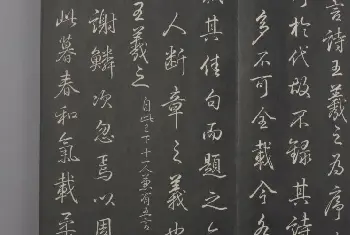 言詩王羲之為序
於代故不錄其詩
多不可全載今各
裁其佳句而題之
人斷章之義也
王羲之 自此已下十一人兼有五言
謝鱗次忽焉以周
此暮春和氣載柔